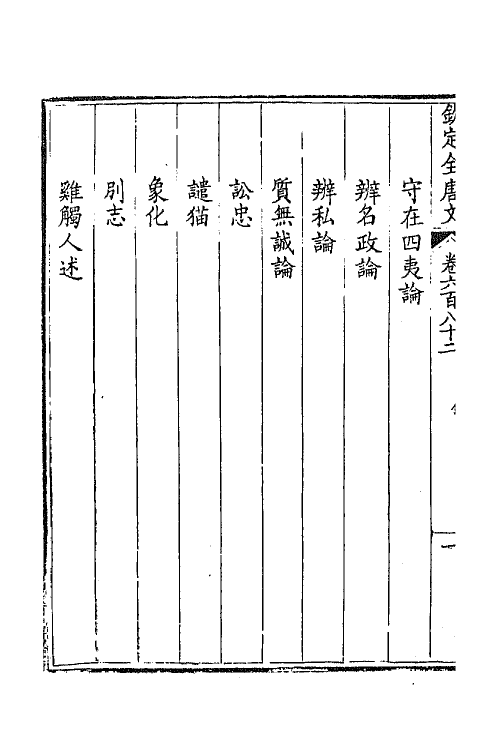 欽定全唐文 卷六百八十二 一
守在四夷論
辨名政論
辨私論
質無誠論
訟忠
譴猫
象化
別志
雞觸人述